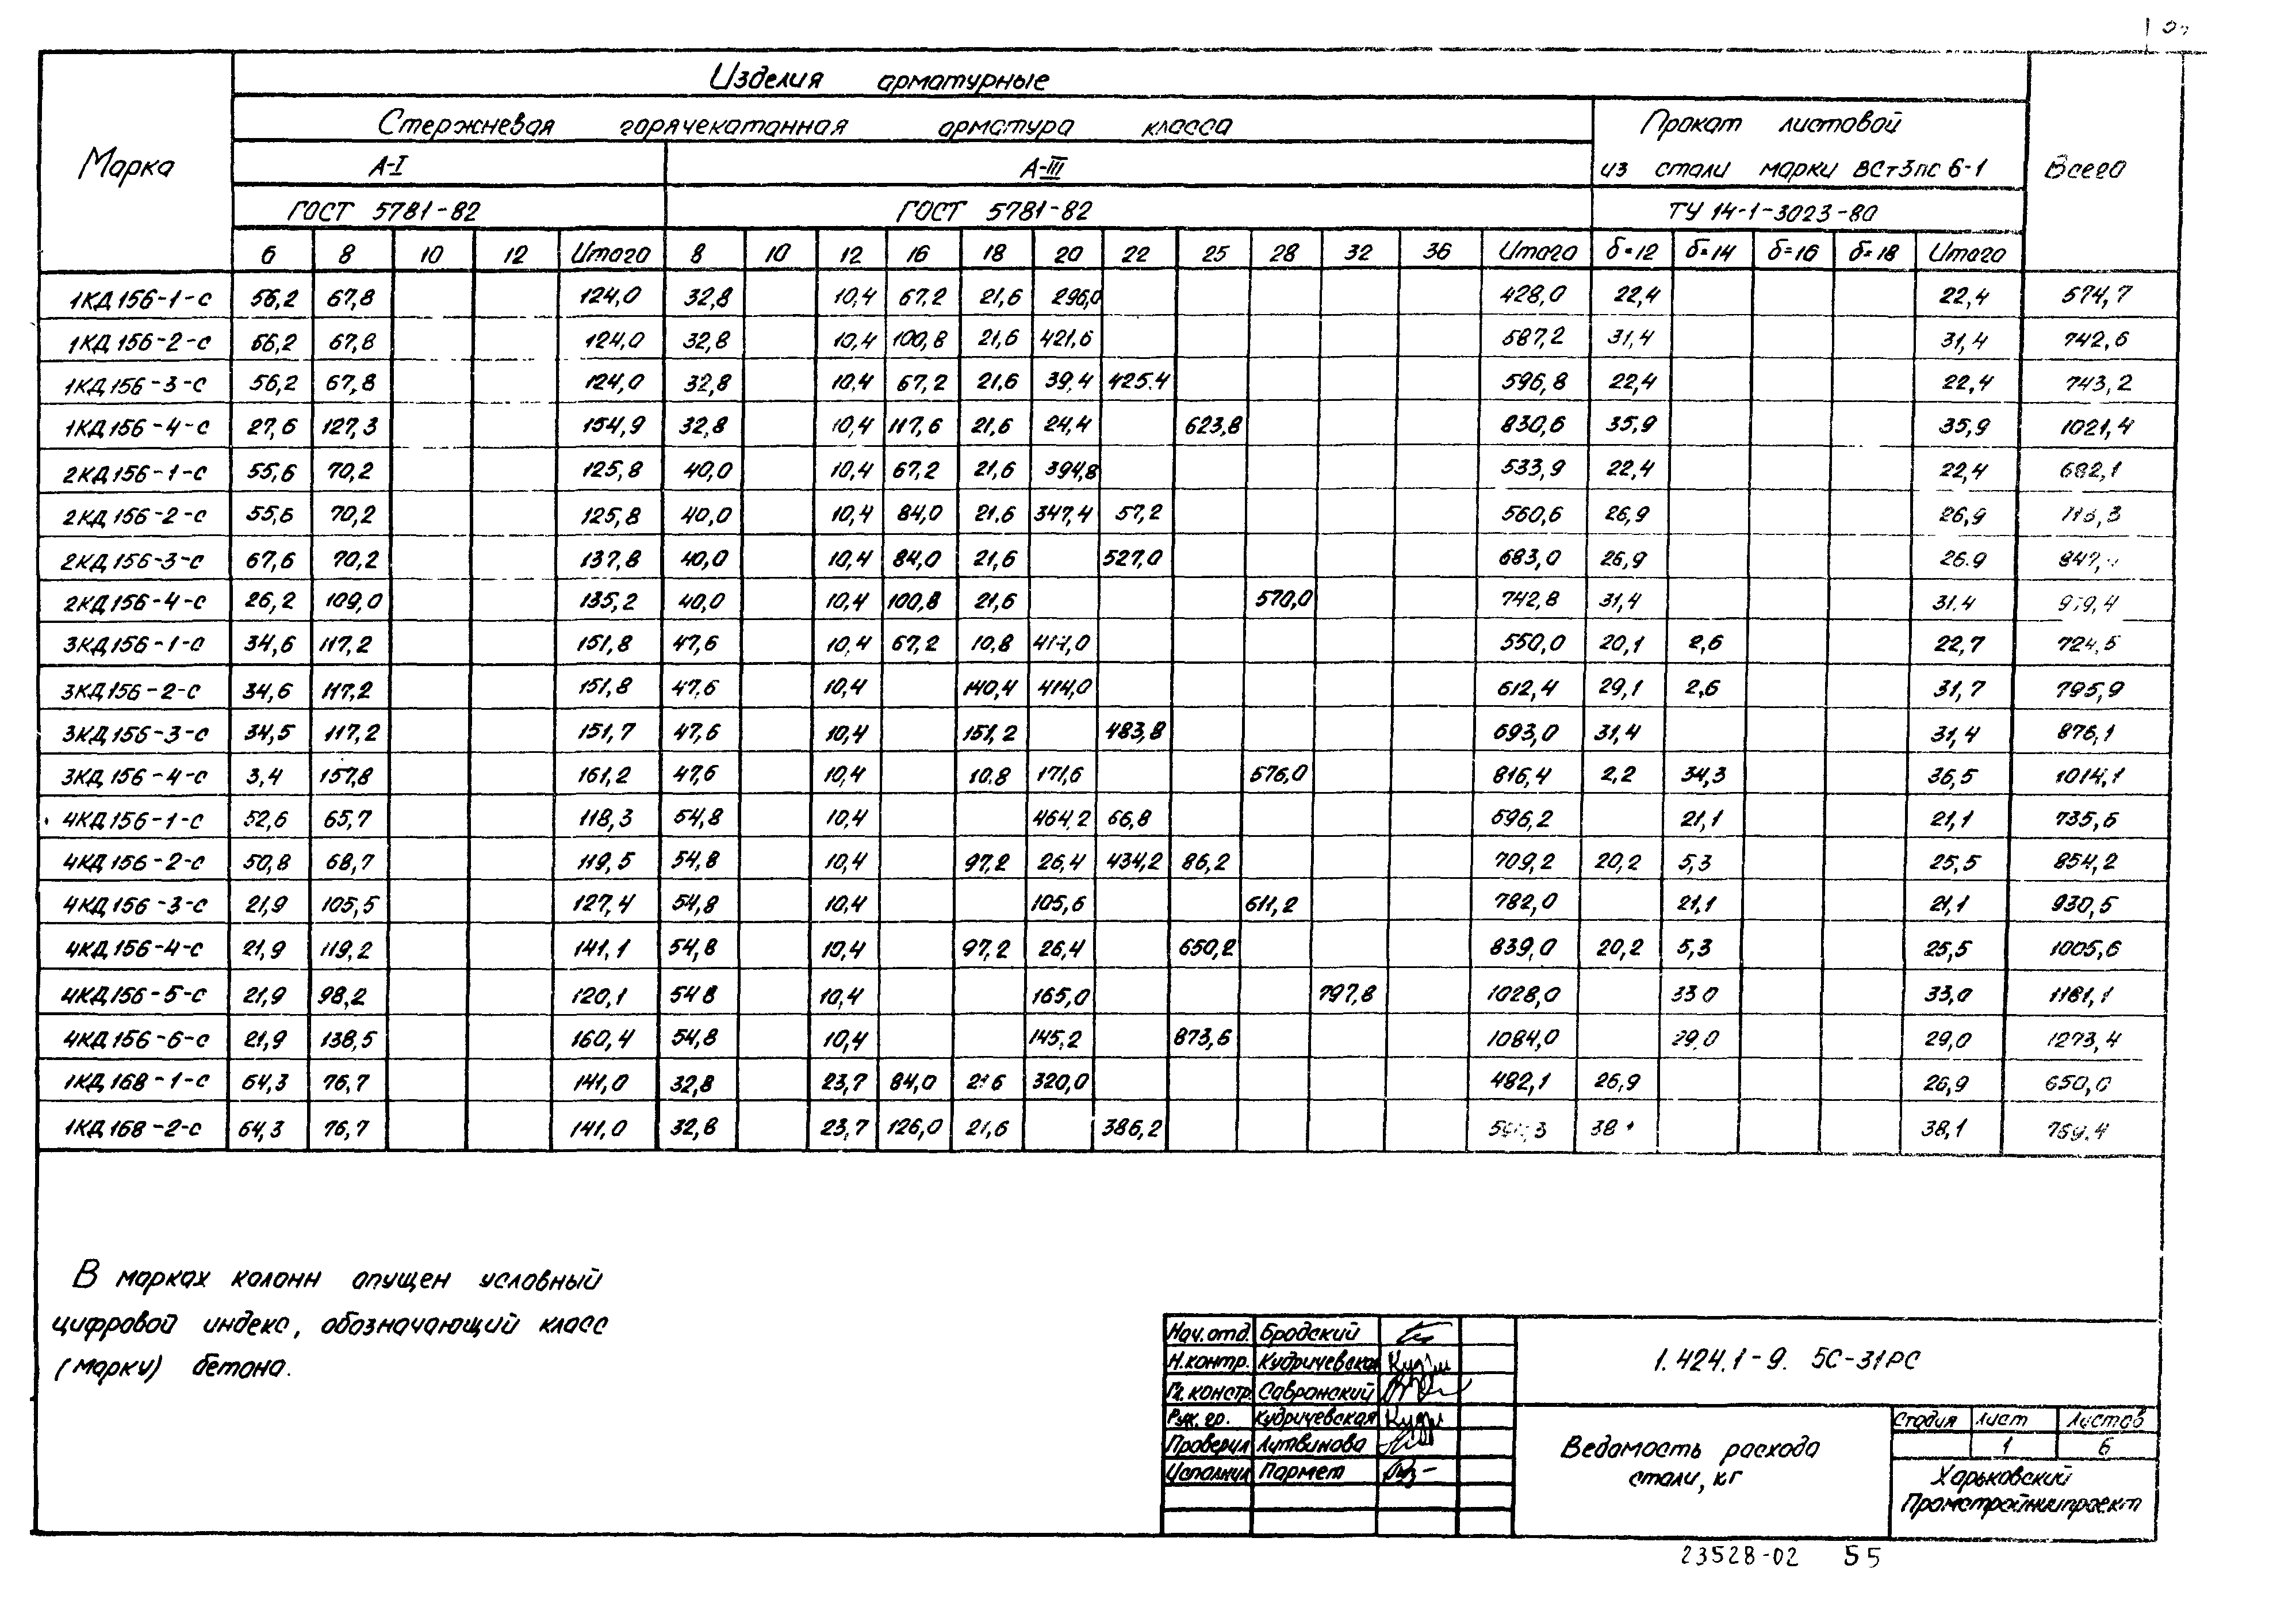 Марка
Изделия арматурные
Всего
Стержневая горячекатанная арматура класса
Прокат листовой
из стали марки ВСт3пс 6-1
А-I
А-III
ГОСТ 5781-82
ГОСТ 5781-82
ТУ 14-1-3023-80
6 8 10 12 Итого 8 10 12 16 18 20 22 25 28 32 36 Итого δ=12 δ=14 δ=16 δ=18 Итого
1КД156-1-с 56,2 67,8 124,0 32,8 10,4 67,2 21,6 296,0 428,0 22,4 22,4 574,7
1КД156-2-с 56,2 67,8 124,0 32,8 10,4 100,8 21,6 421,6 587,2 31,4 31,4 742,6
1КД156-3-с 56,2 67,8 124,0 32,8 10,4 67,2 21,6 39,4 425.4 596,8 22,4 22,4 743,2
1КД156-4-с 27,6 127,3 154,9 32,8 10,4 117,6 21,6 24,4 623,8 830,6 35,9 35,9 1021,4
2КД156-1-с 55,6 70,2 125,8 40,0 10,4 67,2 21,6 394,8 533,9 22,4 22,4 682,1
2КД156-2-с 55,6 70,2 125,8 40,0 10,4 84,0 21,6 347,4 57,2 560,6 26,9 26,9
2КД156-3-с 67,6 70,2 137,8 40,0 10,4 84,0 21,6 527,0 683,0 26,9 26.9
2КД156-4-с 26,2 109,0 135,2 40,0 10,4 100,8 21,6 570,0 742,8 31,4 31,4
3КД156-1-с 34,6 117,2 151,8 47,6 10,4 67,2 10,8 414,0 550,0 20,1 2,6 22,7 724,5
3КД156-2-с 34,6 117,2 151,8 47,6 10,4 140,4 414,0 612,4 29,1 2,6 31,7 795,9
3КД156-3-с 34,5 117,2 151,7 47,6 10,4 151,2 483,8 693,0 31,4 31,4 876,1
3КД156-4-с 3,4 157,8 161,2 47,6 10,4 10,8 171,6 576,0 816,4 2,2 34,3 36,5 1014,1
4КД156-1-с 52,6 65,7 118,3 54,8 10,4 464,2 66,8 596,2 21,1 21,1 735,6
4КД156-2-с 50,8 68,7 119,5 54,8 10,4 97,2 26,4 434,2 86,2 709,2 20,2 5,3 25,5 854,2
4КД156-3-с 21,9 105,5 127,4 54,8 10,4 105,6 611,2 782,0 21,1 21,1 930,5
4КД156-4-с 21,9 119,2 141,1 54,8 10,4 97,2 26,4 650,2 839,0 20,2 5,3 25,5 1005,6
4КД156-5-с 21,9 98,2 120,1 54 8 10,4 165,0 797,8 1028,0 33 0 33,0 1181,1
4КД156-6-с 21,9 138,5 160,4 54,8 10,4 145,2 873,6 1084,0 29,0 29,0 1273,4
1КД168-1-с 64,3 76,7 141,0 32,8 23,7 84,0 21 6 320,0 482,1 26,9 26,9 650,0
1КД168-2-с 64,3 76,7 141,0 32,8 23,7 126,0 21,6 386,2 38,1 769,4
В марках колонн опущен условный
цифровой индекс, обозначающий класс
(марку) бетона.
Нач.отд. Бродский
Н.контр. Кудричевская
Гл.констр. Савранский
Рук. гр. Кудричевская
Проверил Литвинова
Исполнил Пармет
1.424.1-9. 5С-31РС
Ведомость расхода
стали, кг
Стадия Лист Листов
1 6
Харьковский
Промстройниипроект
23528-02 55